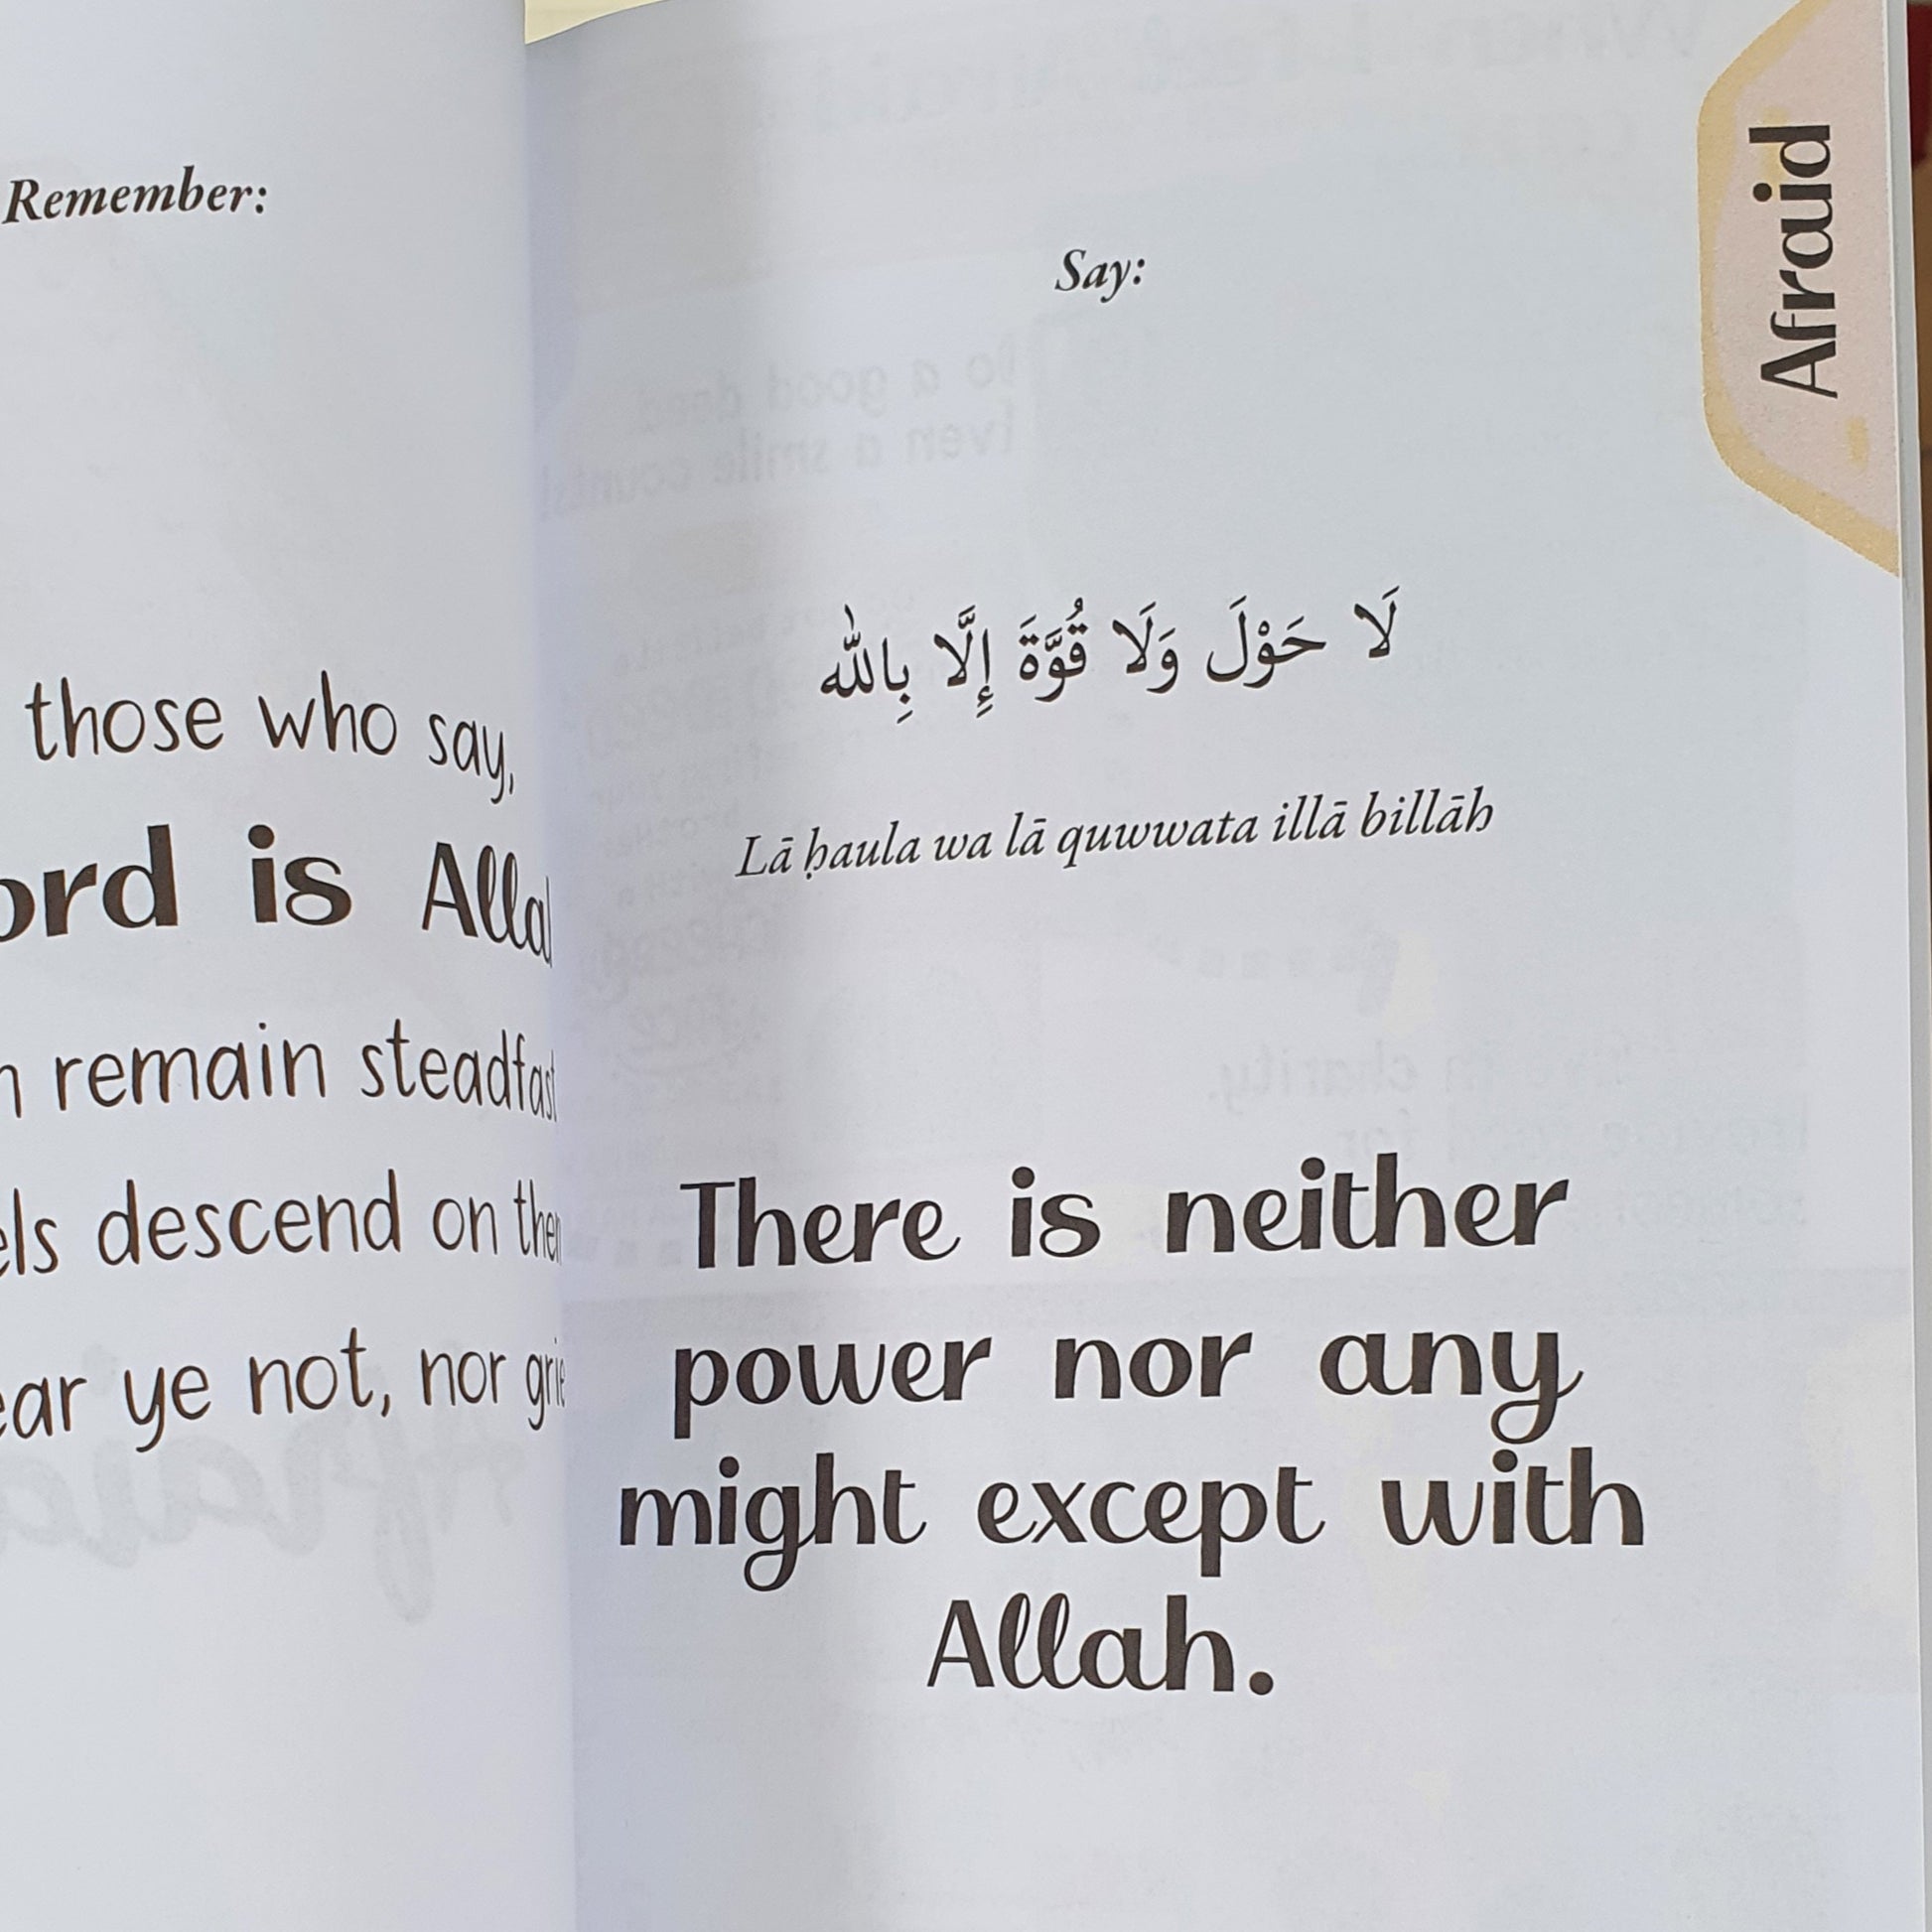 Remember:
those who say,
is
remain steadfast
descend on
ye not, nor
Afraid
Say:
لَا حَوْلَ وَلَا قُوَّةَ إِلَّا بِاللّٰه
Lā ḥaula wa lā quwwata illā billāh
There is neither
power nor any
might except with
Allah.